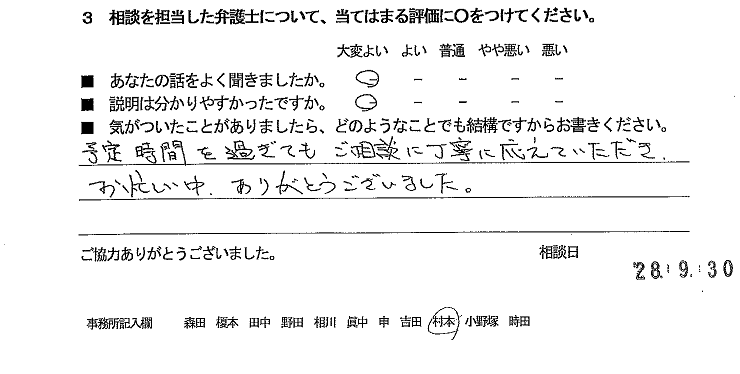 3 相談を担当した弁護士について、当てはまる評価に○をつけてください。
大変よい よい 普通 やや悪い 悪い
■ あなたの話をよく聞きましたか。 ○ － － － －
■ 説明は分かりやすかったですか。 ○ － － － －
■ 気がついたことがありましたら、どのようなことでも結構ですからお書きください。
予定時間を過ぎてもご相談に丁寧に応えていただき、
お忙しい中、ありがとうございました。
ご協力ありがとうございました。 相談日
'28.9.30
事務所記入欄 森田 榎本 田中 野田 相川 眞中 申 吉田 村本 小野塚 時田